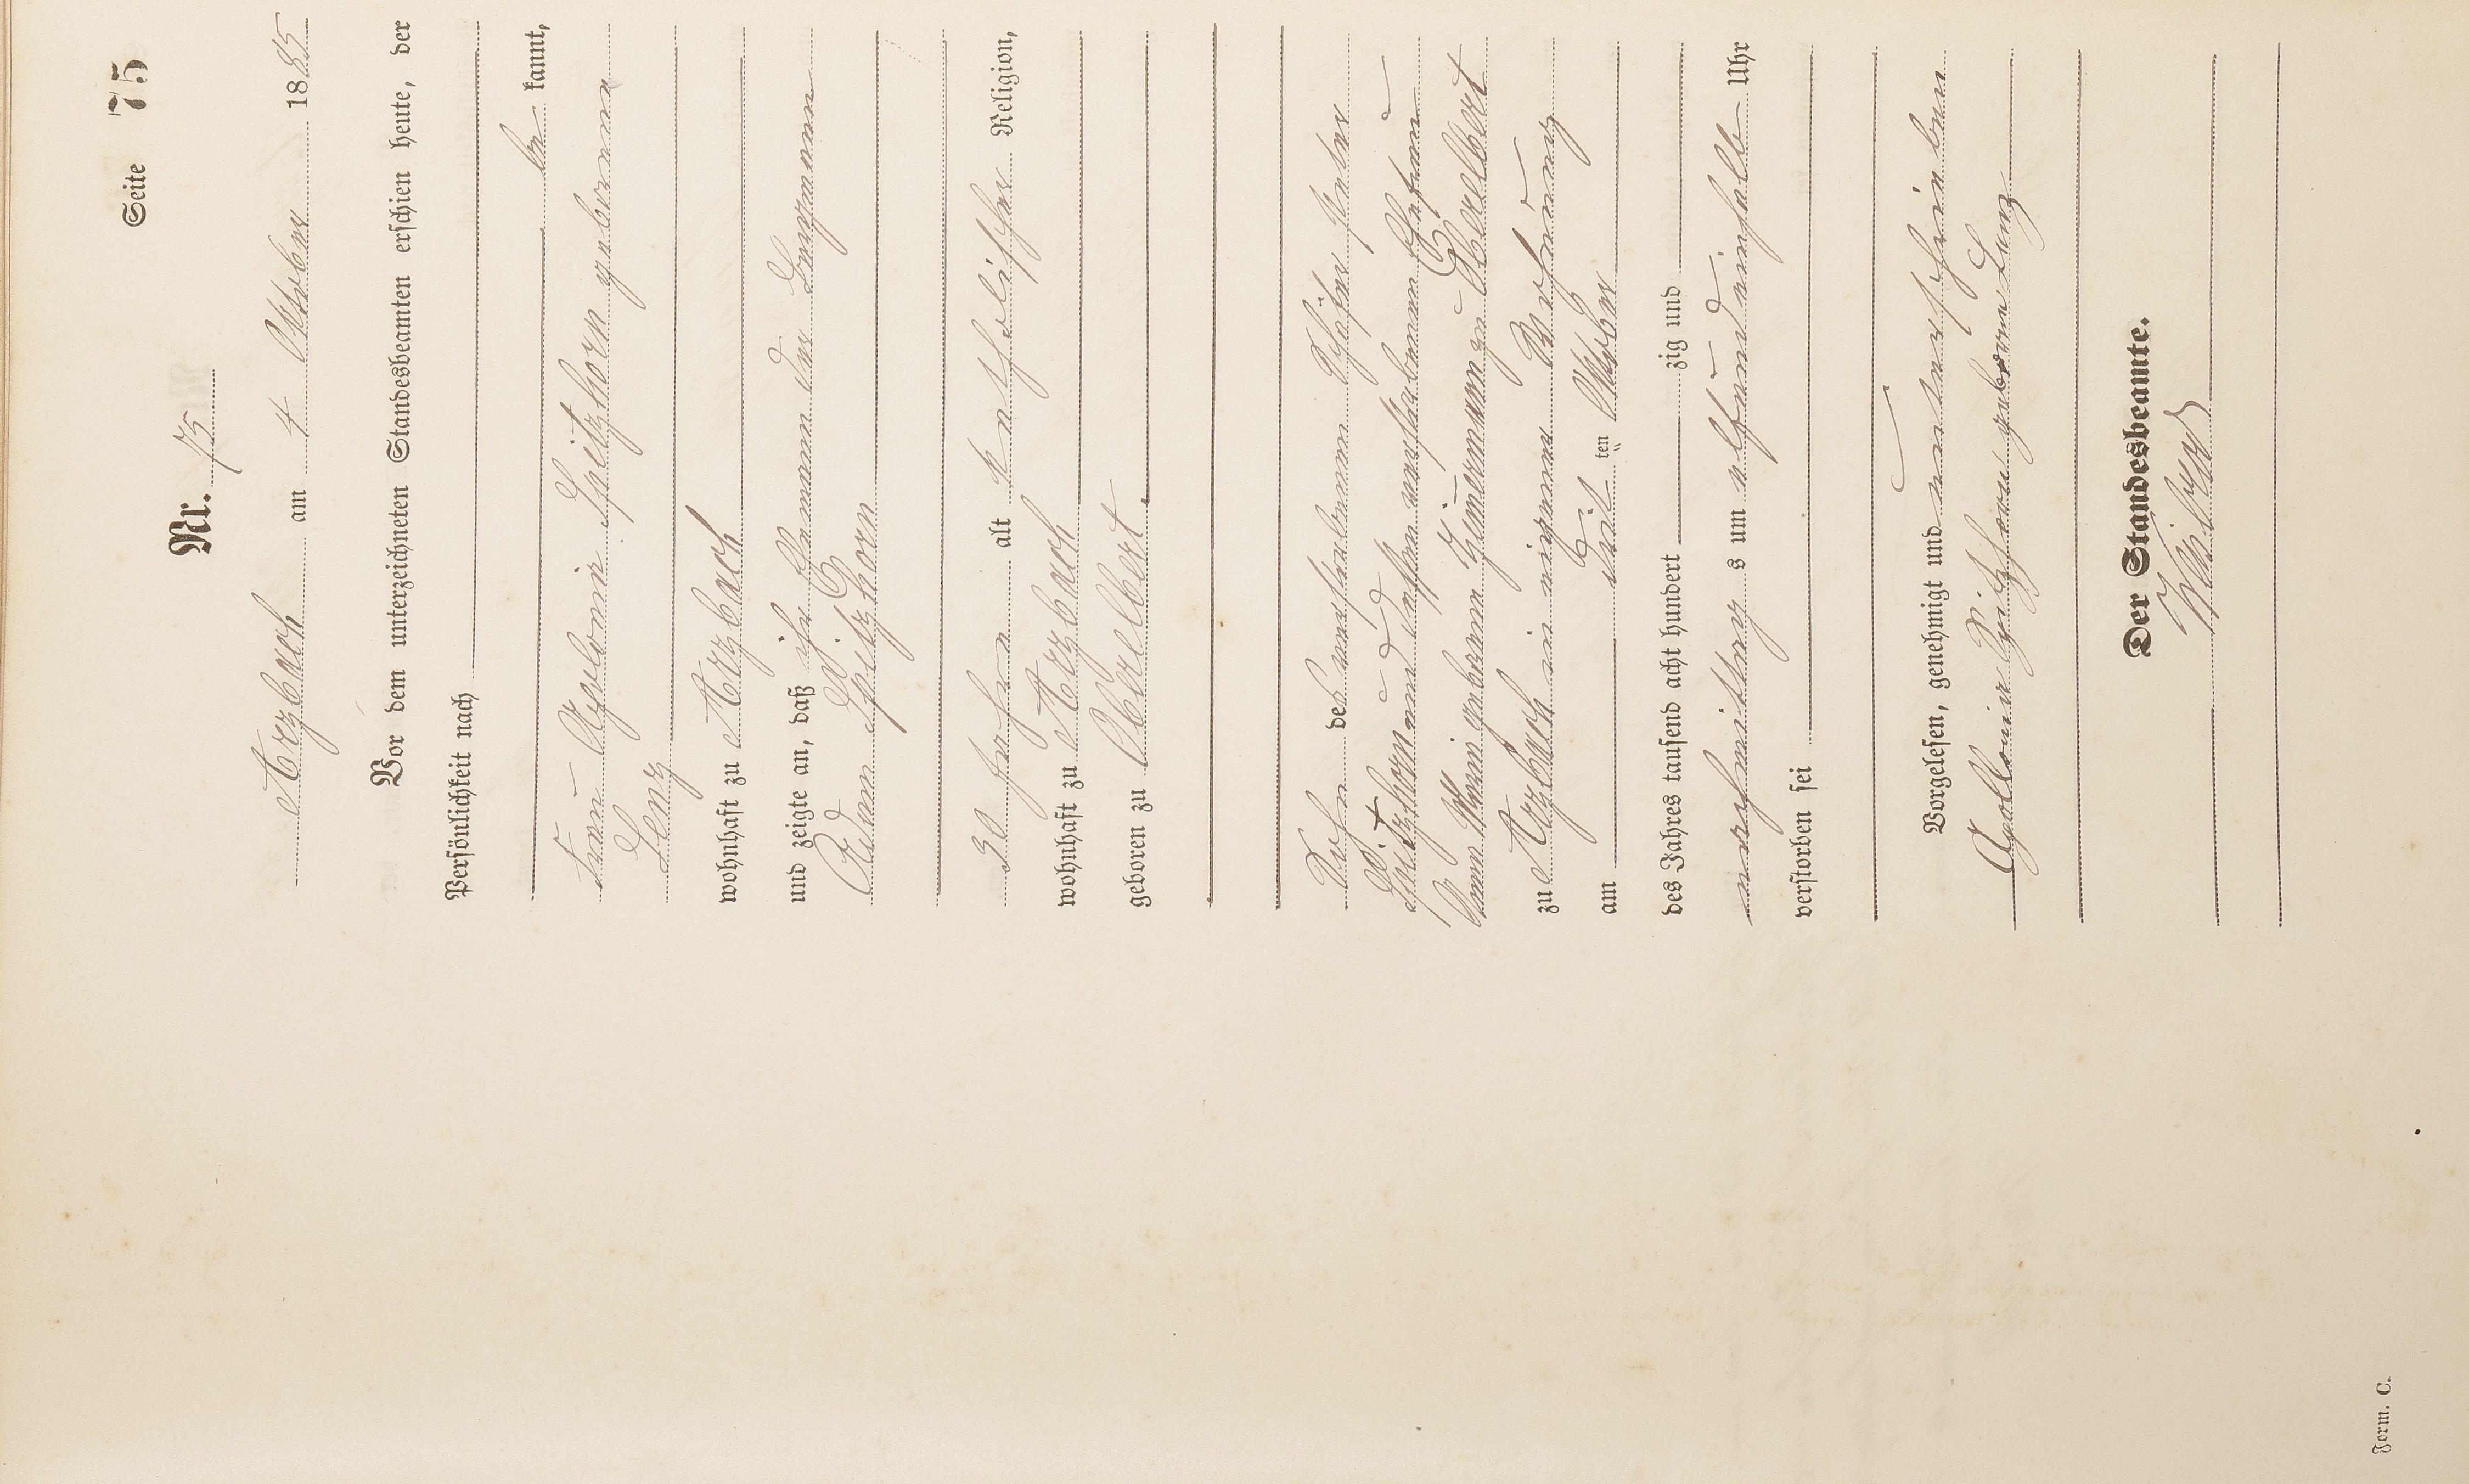 Seite 75
Nr. 75
Arzbach am 4 Oktober 1885
Vor dem unterzeichneten Standesbeamten erschien heute, der
Persönlichkeit nach
be kannt,
Frau Apolonia Spitzhorn geborene
Lenz
wohnhaft zu Arzbach
und zeigte an, daß ihr Ehemann der Bergmann
Adam Spitzhorn
30 Jahre alt katholischer Religion,
wohnhaft zu Arzbach
geboren zu Oberelbert
Sohn des verstorbenen Schäfer Peter
Spitzhorn und dessen verstorbenen Ehefrau
Anna Maria geborene Zimermann zu Oberelbert
zu Arzbach in eigener Wohnung
am drit ten Oktober
des Jahres tausend acht hundert zig und
nachmittags um elfundeinhalb Uhr
verstorben sei
Vorgelesen, genehmigt und unterschrieben
Apollonia Spitzhorn geborne Lenz
Der Standesbeamte.
Form. C.